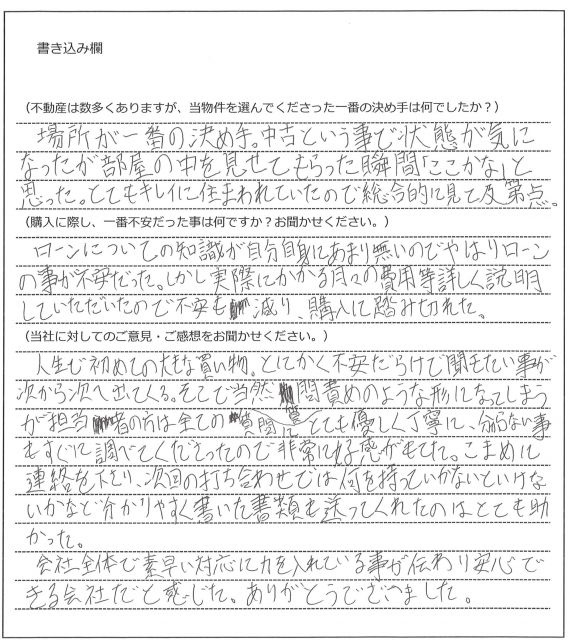 書き込み欄
（不動産は数多くありますが、当物件を選んでくださった一番の決め手は何でしたか？）
場所が一番の決め手。中古という事で状態が気に
なったが部屋の中を見せてもらった瞬間「ここかな」と
思った。とてもキレイに住まわれていたので総合的に見て及第点。
（購入に際し、一番不安だった事は何ですか？お聞かせください。）
ローンについての知識が自分自身にあまり無いのでやはりローン
の事が不安だった。しかし実際にかかる月々の費用等詳しく説明
していただいたので不安も減り、購入に踏み切れた。
（当社に対してのご意見・ご感想をお聞かせください。）
人生で初めての大きな買い物。とにかく不安だらけで聞きたい事が
次から次へ出てくる。そこで当然問責めのような形になってしまう
が担当者の方は全ての質問にとても優しく丁寧に、分らない事
もすぐに調べてくださったので非常に好感がもてた。こまめに
連絡を下さり、次回の打ち合わせでは何を持っていかないといけな
いかなど分かりやすく書いた書類も送ってくれたのはとても助
かった。
会社全体で素早い対応に力を入れている事が伝わり安心で
きる会社だと感じた。ありがとうございました。